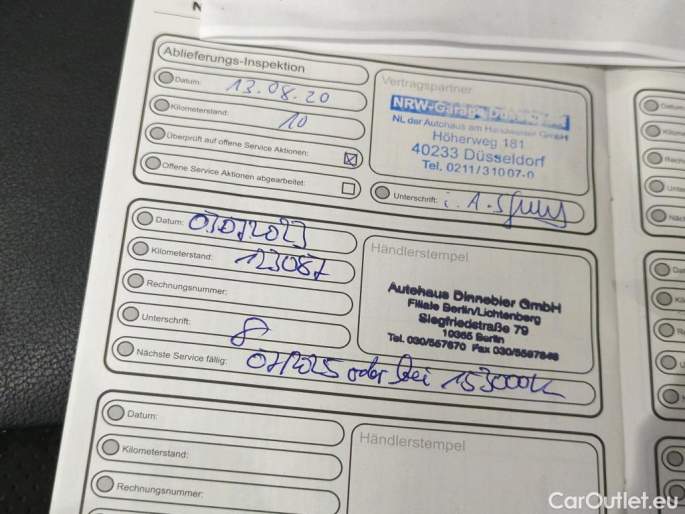 Ablieferungs-Inspektion
Datum: 13.08.20
Kilometerstand: 10
Überprüft auf offene Service Aktionen:
Offene Service Aktionen abgearbeitet:
Vertragspartner
NRW-Garage Düsseldorf
NL der Autohaus am Handweiser GmbH
Höherweg 181
40233 Düsseldorf
Tel. 0211/31007-0
Unterschrift: i. A.
Datum: 03.07.2023
Kilometerstand: 123087
Rechnungsnummer:
Unterschrift:
Nächste Service fällig: 07/2025 oder bei 153000
Händlerstempel
Autohaus Dinnebier GmbH
Filiale Berlin/Lichtenberg
Siegfriedstraße 79
10365 Berlin
Tel. 030/557670 Fax 030/5597848
Datum:
Kilometerstand:
Rechnungsnummer:
Händlerstempel
CarOutlet.eu